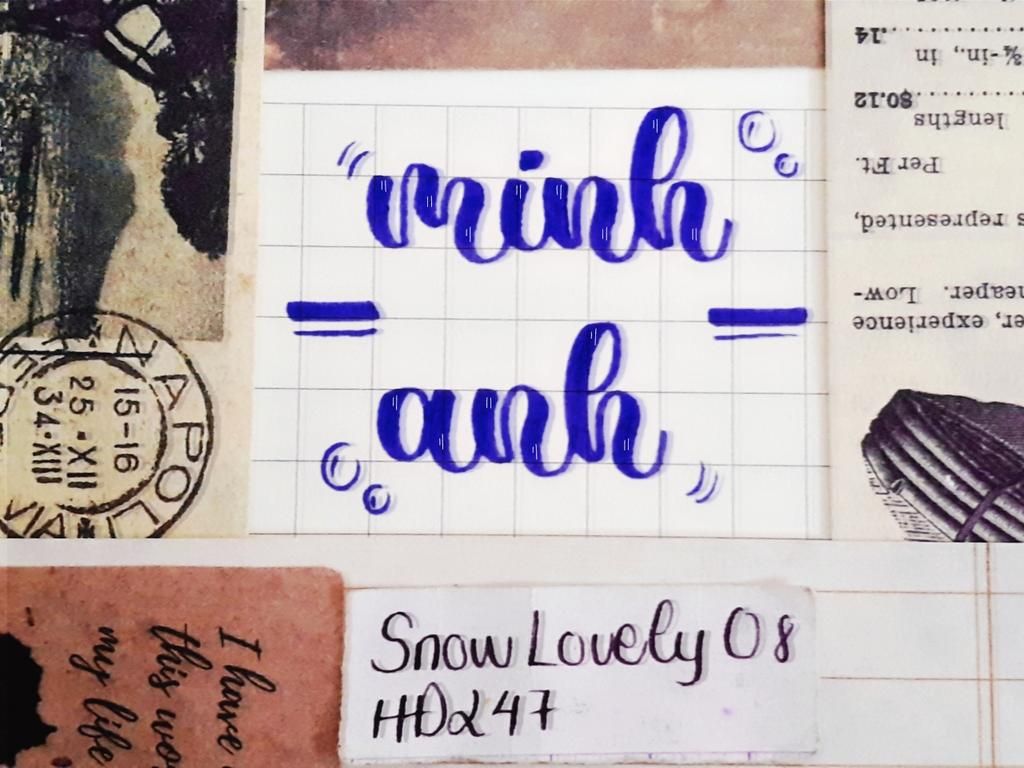 minh
anh
Snow Lovely 08
HD247
.14
¾-in., in
$0.12
lengths
Per Ft.
represented,
Low-
experience
NAPOLI
15-16
25·XII
34·XII
I have
this
my life